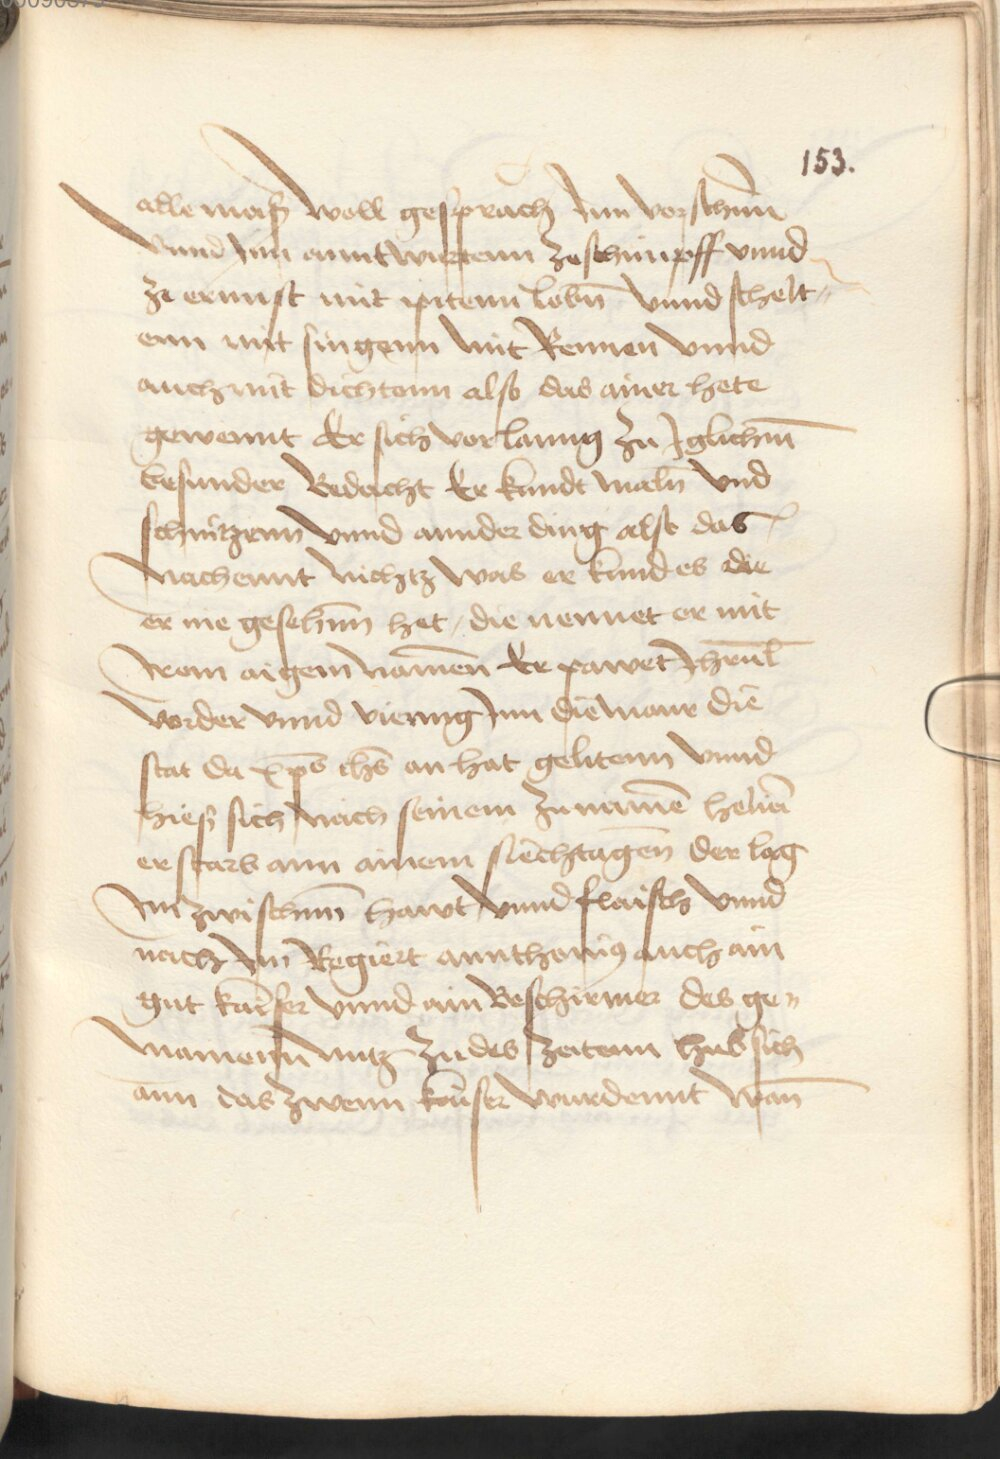 153.
alle mass woll gesprach Inn vorschenn
vnnd Inn anntwurtenn zeschimpff vnnd
ze ernnst mit pitenn lobn̄ vnnd schelt〃
enn mit singenn mit Rennen vnnd
auch mit dichtenn also das ainer hete
gewennt Er sich vor lanng zu Iglichm̄
besunder Bedacht Er kundt maln̄ vnd
schnitzenn vnnd annder ding alst das
nachennt nichtz was er kund es die
er nie gesehnn het / die nennet er mit
Irem aigem namen Er pawet Ihrl̄m
vorder vnnd vieng Inn die maur die
stat da xp̄s ih̄s an hat gelitenn vnnd
hiess sich nach seinem zunamē heliā
er starb ann ainem siechtagen̄ der lag
Im zwischnn̄ hawt vnnd flaisch vnnd
nach Im Regiert annthonius auch ain
gut kaiser vnnd ain Beschirmer des ge〃
mainenn nutz zu des zeitenn hub sich
ann das zwenn kaiser wurdennt wan̄